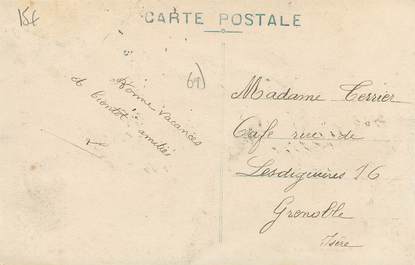 15€
CARTE POSTALE
69)
Bonne vacances
et bientot amitiés
Madame Terrier
Café rue de
Lesdiguières 16
Grenoble
Isère